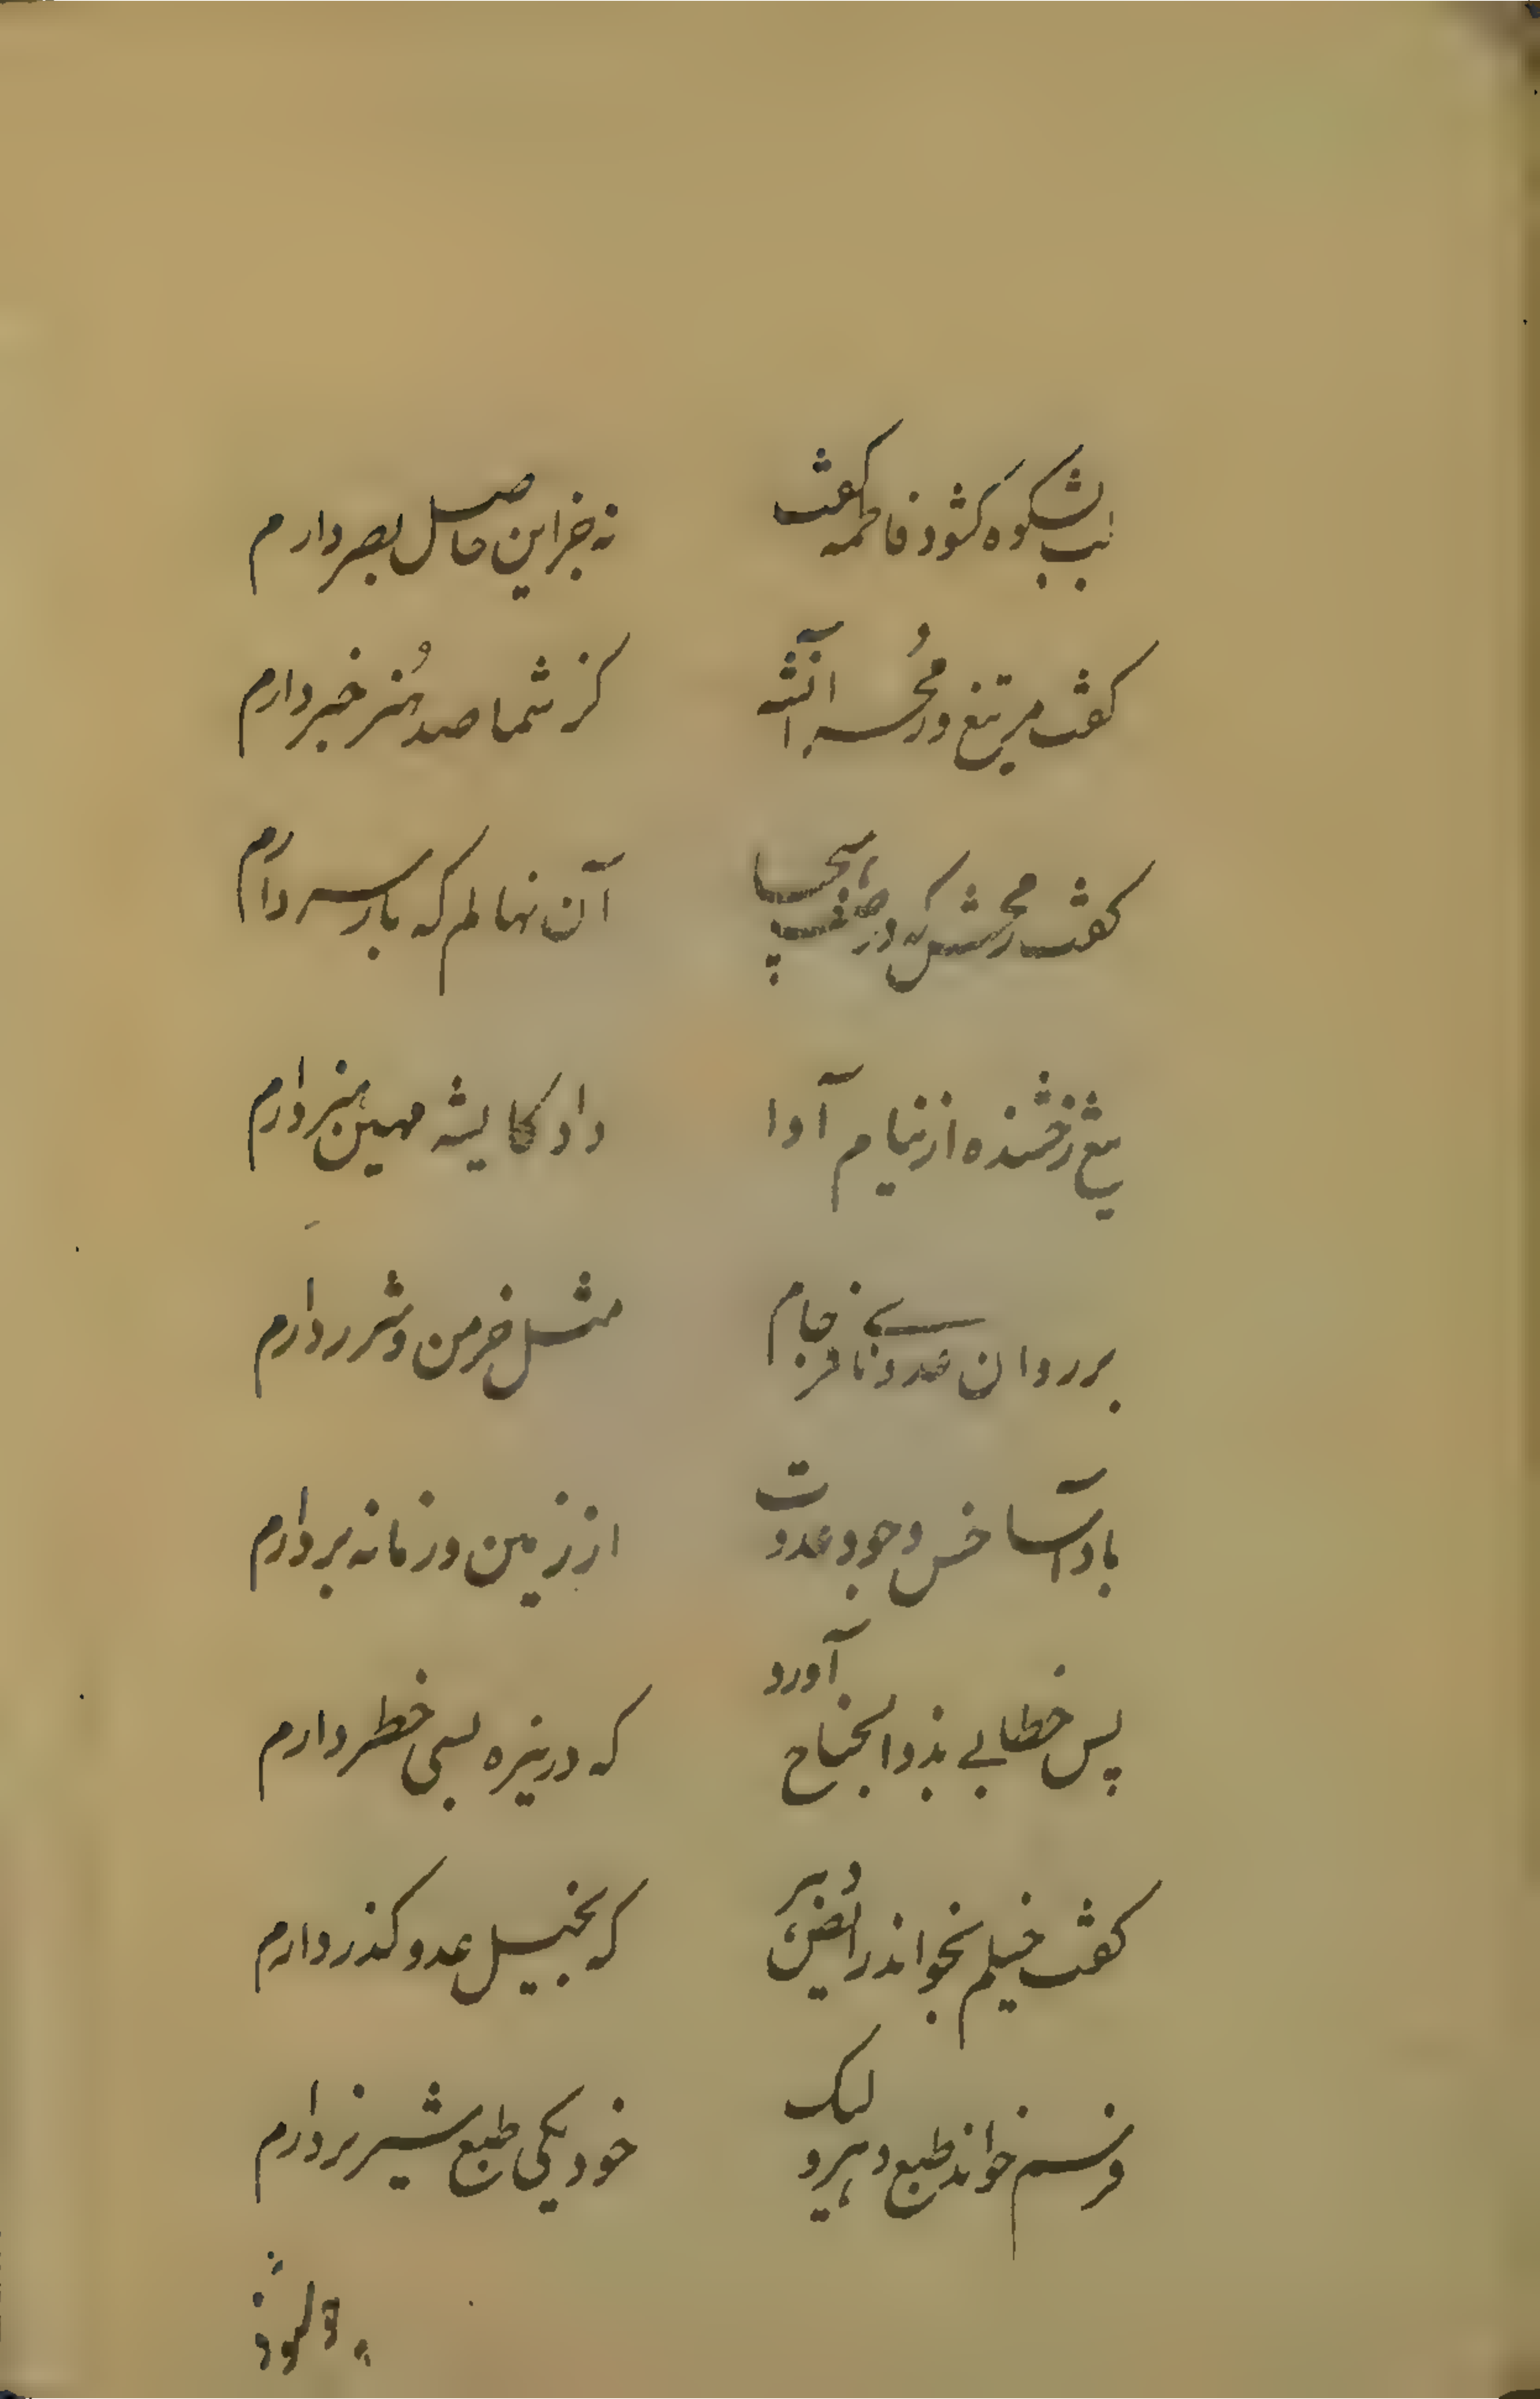 لب بشکوه کشود فاطمه کفت نه جز این حاصل بصر دارم
کفت بر تیغ و رمحُ آنشه کز شما صد هُنر خبر دارم
کفت رمحش که در آن نهالم که بار سر دارم
تیغ رخشنده از نیام آوا داد کایشه مهین هنر دارم
بر روان عدوی نافرجام مثل خرمن و شرر دارم
باد آسا خس وجود عدوت از زمین و زمانه بردارم
پس خطابی بذو الجناح آورد که درین ره بسی خطر دارم
کفت خیلم بخواند که بخیل عدو کذر دارم
فرسم خواند طبع دهر و لیک خود یکی طبع شیر نر دارم